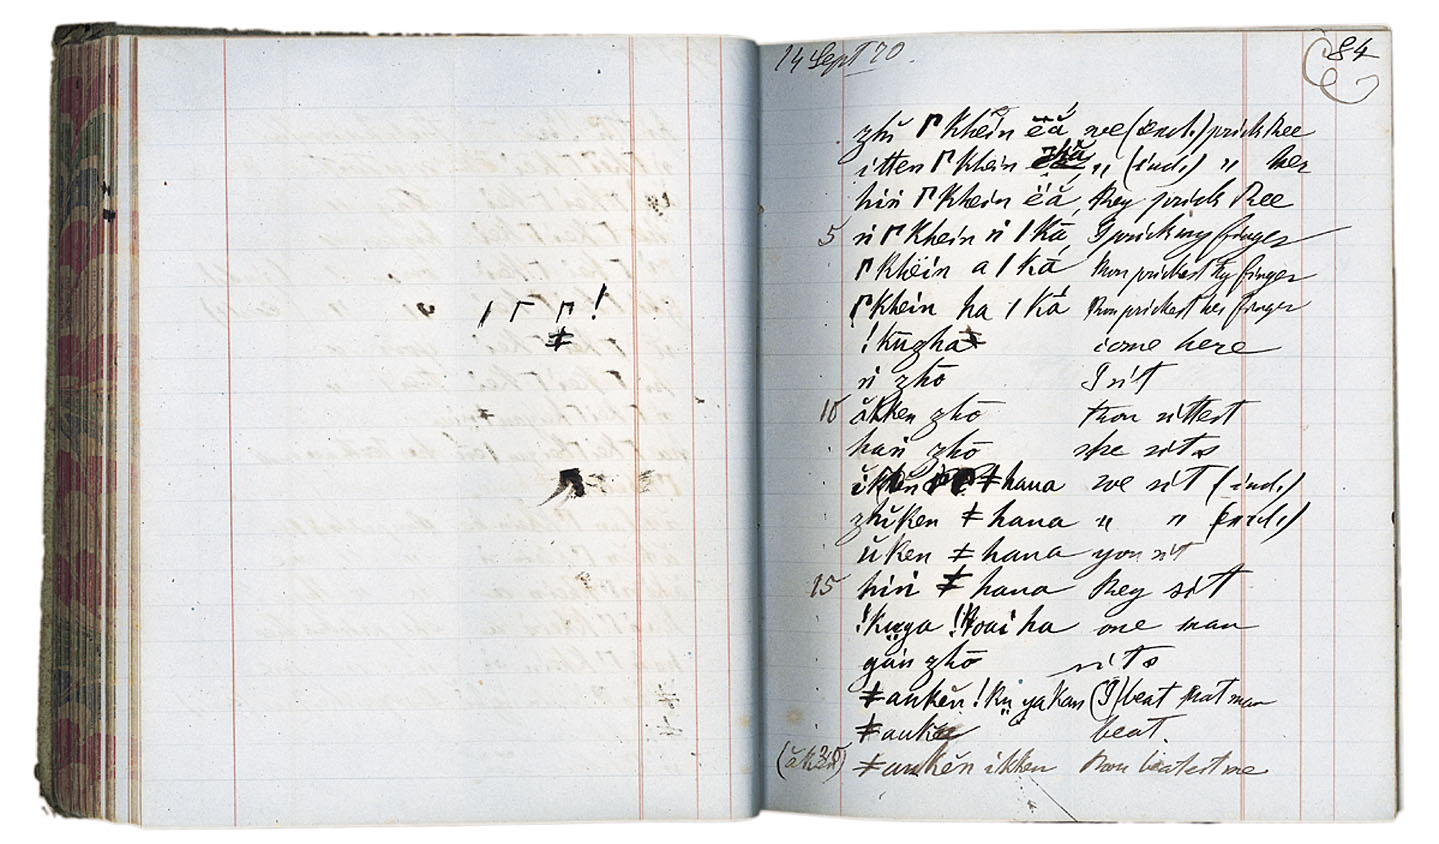 ǀ ┌ ╓ !
ǂ
14 Sept 70.
84
zhŭ ┌ khein ĕă we (excl.) prick thee
itten ┌ khein „ (incl.) „ her
hiṅ ┌ khein ĕă, they prick thee
5 ṅ ┌ khein ṅ ǀ kā, I prick my finger
┌ khein a ǀ kā thou prickest thy finger
┌ khein ha ǀ kā thou prickest his finger
! kūzha come here
ṅ zhō I sit
10 ăkken zhō thou sittest
haṅ zhō she sits
ikkĕn ǂ hana we sit (incl.)
zhŭken ǂ hana „ „ (excl.)
ŭken ǂ hana you sit
15 hiṅ ǂ hana they sit
!kuya !koai ha one man
gán zhō sits
ǂ aukĕn !kuya kan (I) beat that man
ǂ auke beat.
ǂ aukĕn ikken thou beatest me